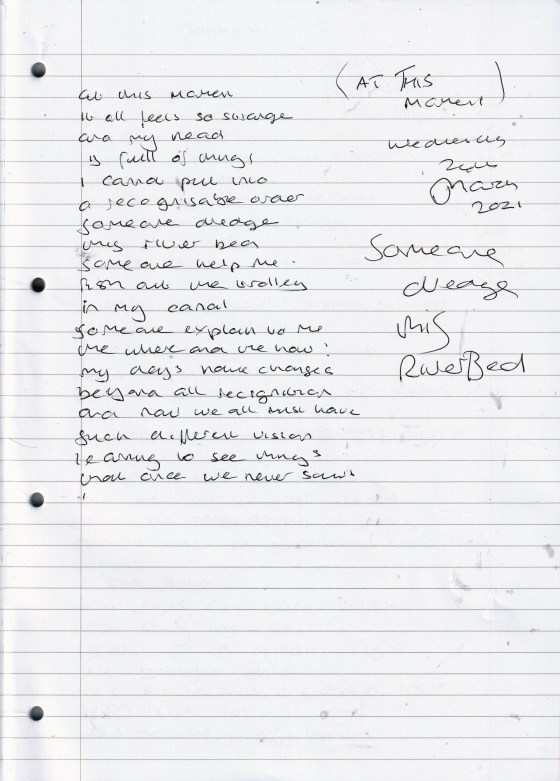 at this moment
it all feels so strange
and my head
is full of things
I cannot put into
a recognisable order
someone dredge
this river bed
someone help me.
fish out the trolley
in my canal
someone explain to me
the where and the how?
my days have changed
beyond all recognition
and now we all must have
such different vision
learning to see things
that once we never saw.
(AT THIS
MOMENT)
Wednesday
March
2021
Someone
dredge
this
RiverBed